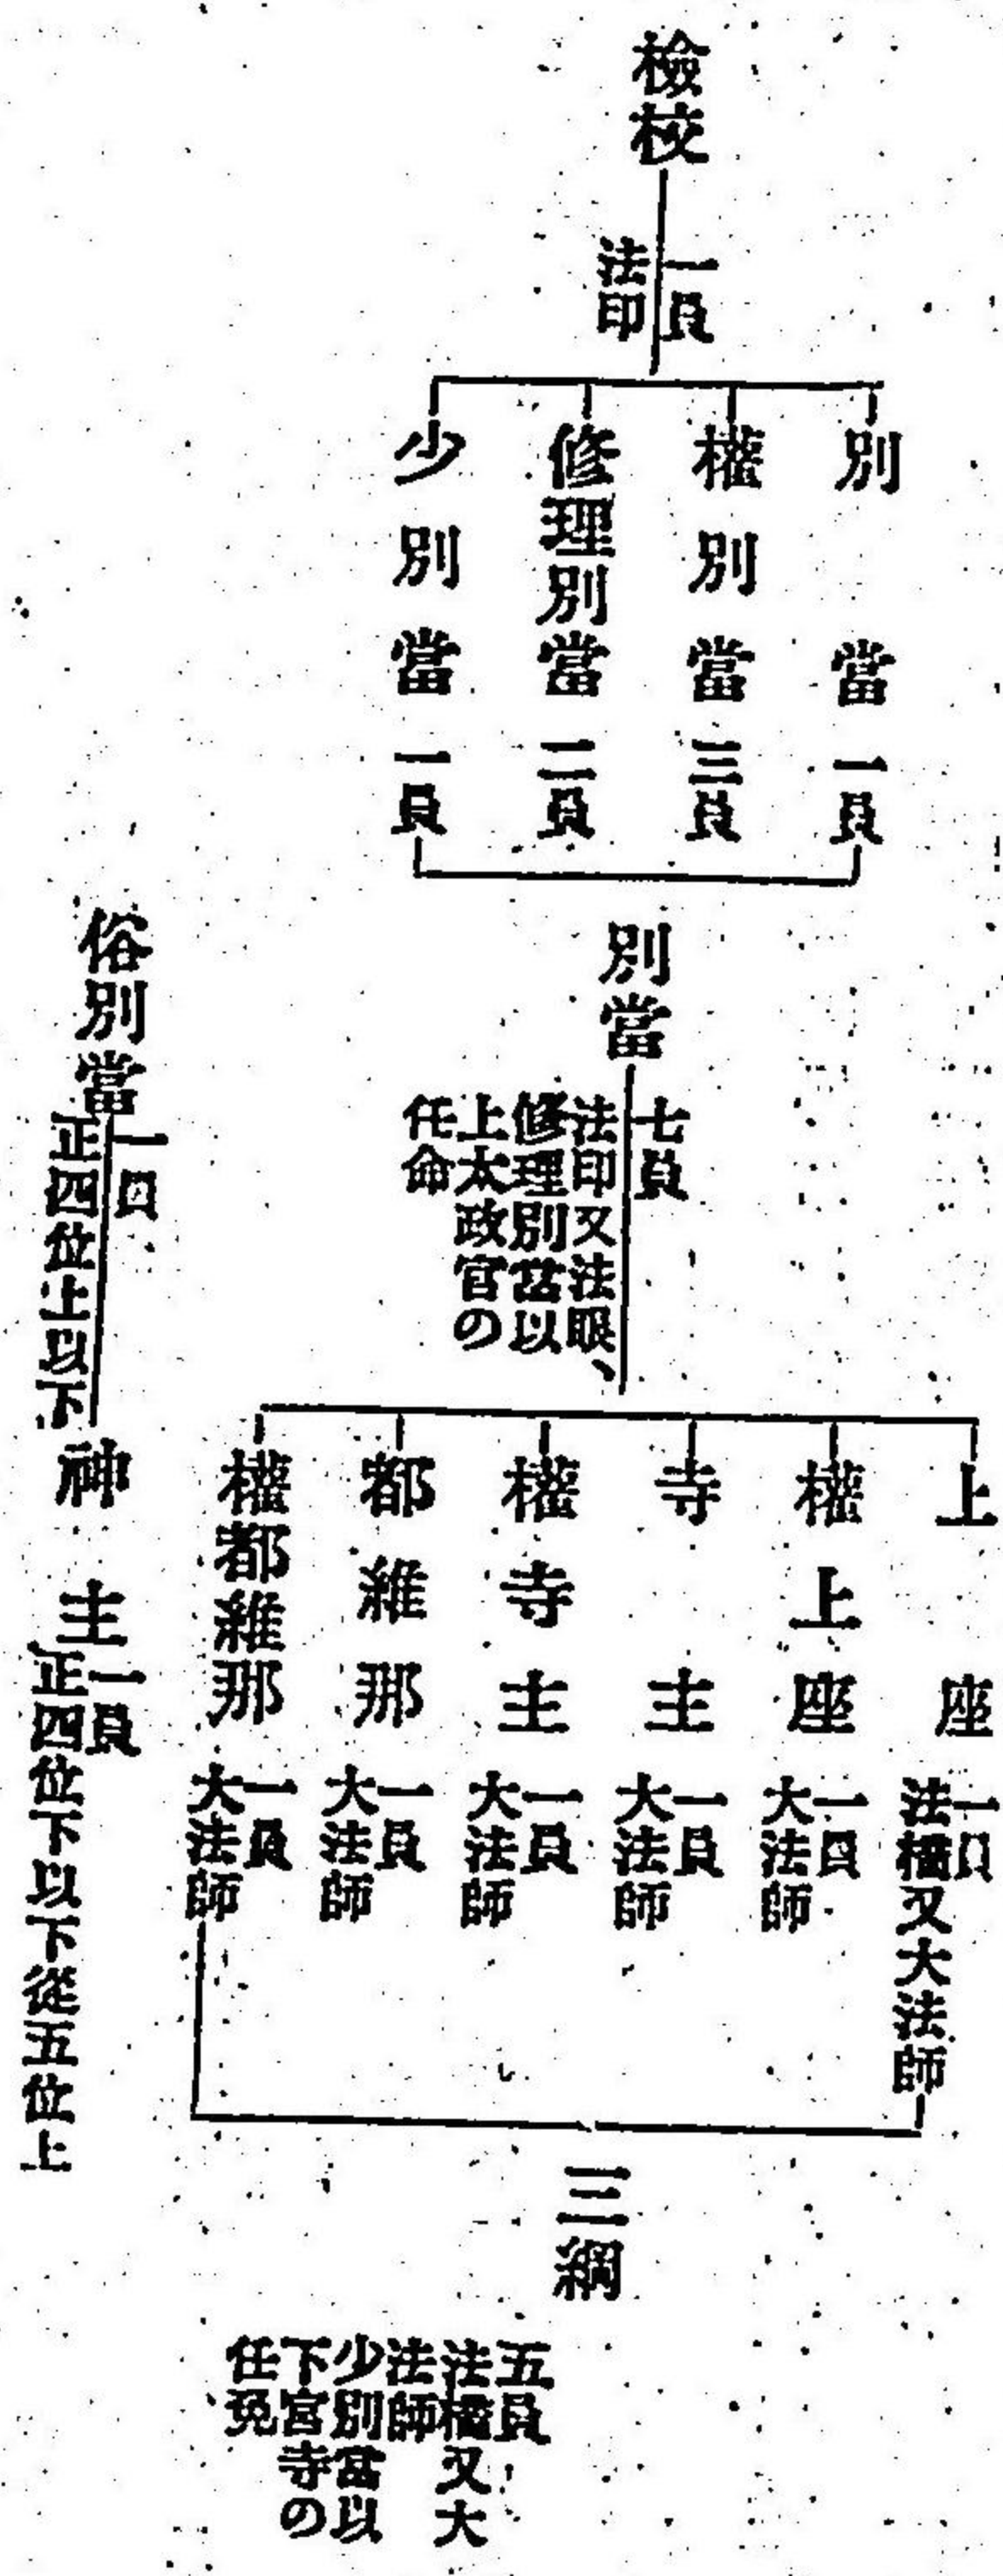 檢校
一員
法印
別當一員
權別當三員
修理別當二員
少別當一員
別當
七員
法印又法眼、
修理別當以
上太政官の
任命
上座
一員
法橋又大法師
權上座
一員
大法師
寺主
一員
大法師
權寺主
一員
大法師
都維那
一員
大法師
權都維那
一員
大法師
三綱
五員
法橋又大
法師
少別當以
下宮寺の
任免
俗別當
一員
正四位上以下
神主
一員
正四位下以下從五位上